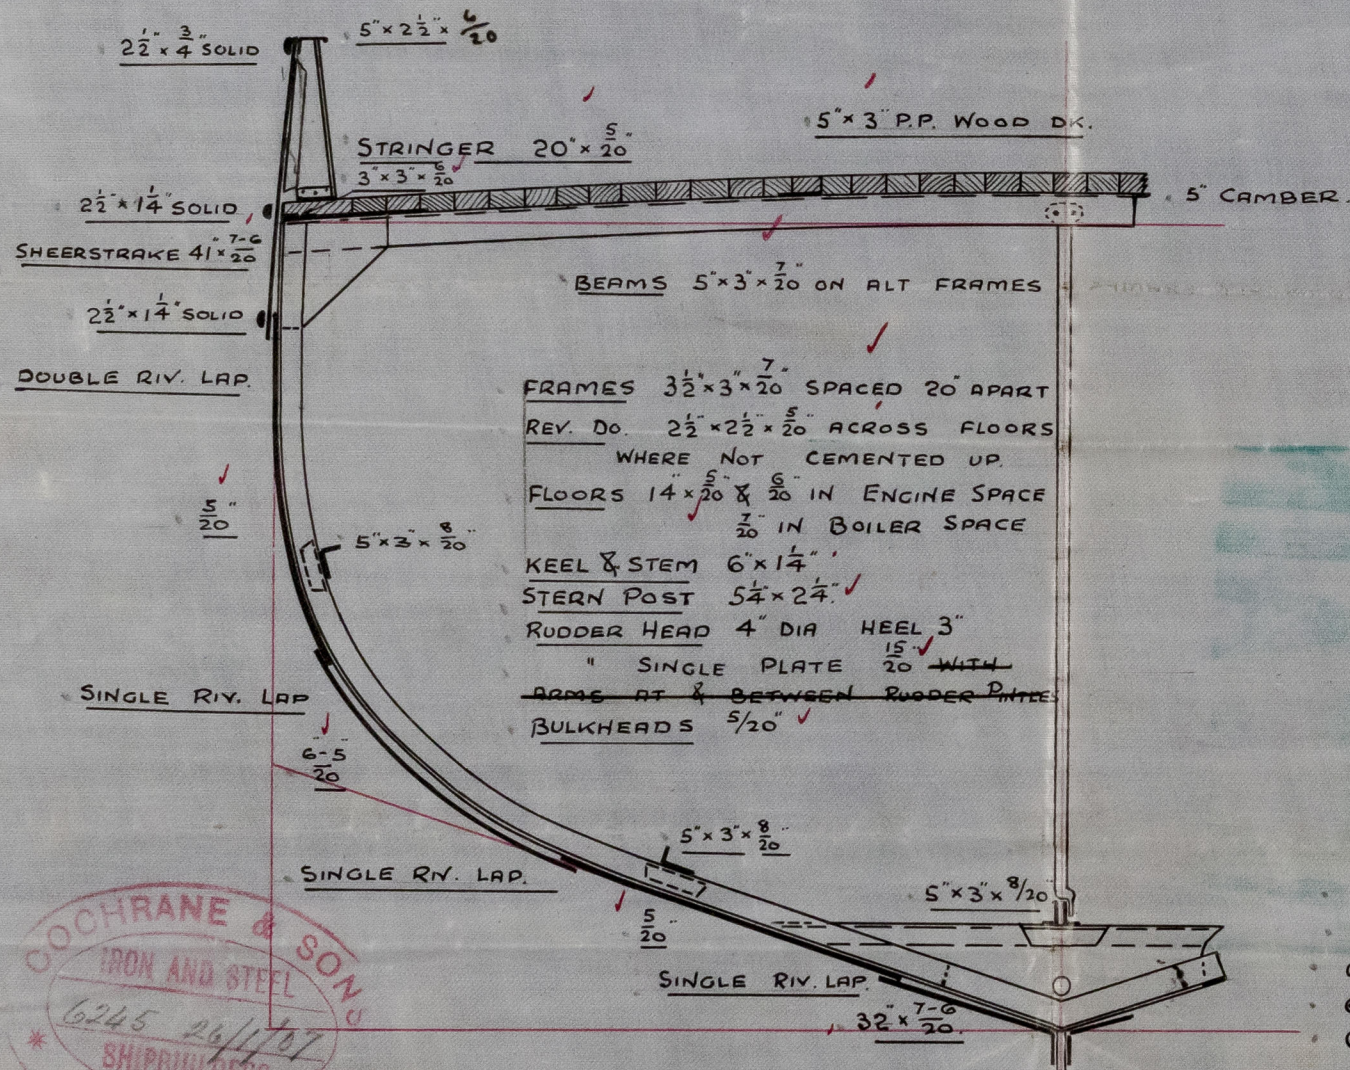 2½" × ¾" SOLID
5" × 2½" × 6/20
5" × 3" P.P. WOOD DK.
STRINGER 20" × 5/20"
3" × 3" × 6/20"
2½" × 1¼" SOLID
5" CAMBER.
SHEERSTRAKE 41" × 7-6/20"
BEAMS 5" × 3" × 7/20" ON ALT FRAMES
2½" × 1¼" SOLID
DOUBLE RIV. LAP.
FRAMES 3½" × 3" × 7/20" SPACED 20" APART
REV. DO. 2½" × 2½" × 5/20" ACROSS FLOORS
WHERE NOT CEMENTED UP.
FLOORS 14" × 5/20" & 6/20" IN ENGINE SPACE
7/20" IN BOILER SPACE
5/20"
5" × 3" × 8/20"
KEEL & STEM 6" × 1¼"
STERN POST 5¼" × 2¼"
RUDDER HEAD 4" DIA HEEL 3"
" SINGLE PLATE 15/20" WITH
ARMS AT & BETWEEN RUDDER PINTLES
BULKHEADS 5/20"
SINGLE RIV. LAP
6-5/20"
5" × 3" × 8/20"
SINGLE RIV. LAP.
5" × 3" × 8/20"
5/20"
SINGLE RIV. LAP.
32" × 7-6/20"
COCHRANE & SONS
IRON AND STEEL
6245 26/1/07
SHIPBUILDERS